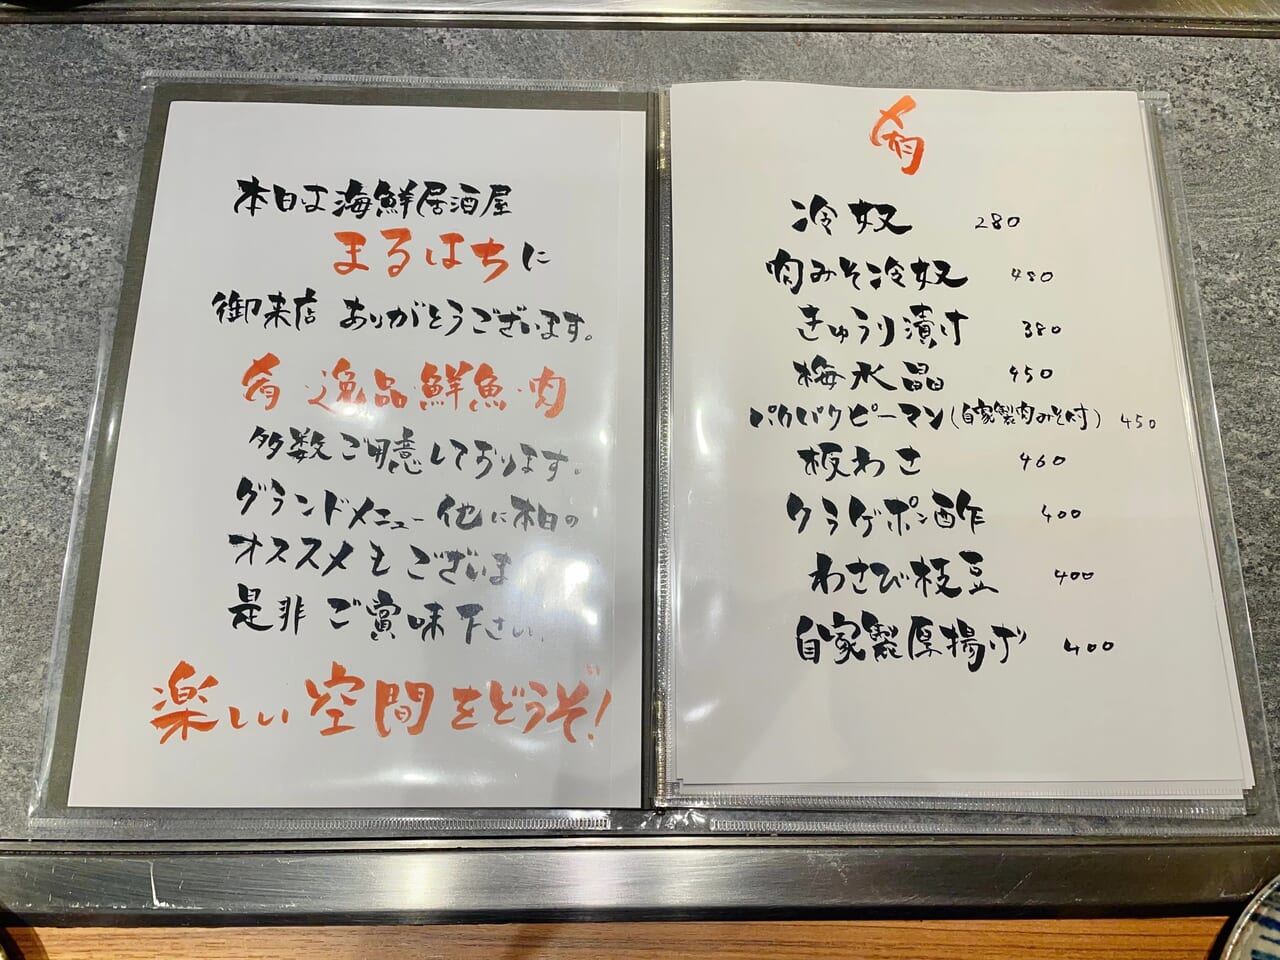 本日は海鮮居酒屋
まるはちに
御来店 ありがとうございます。
肴・逸品・鮮魚・肉
多数ご用意しております。
グランドメニュー他に本日の
オススメもございま
是非 ご賞味下さい。
楽しい空間をどうぞ!
肴
冷奴 280
肉みそ冷奴 480
きゅうり漬け 380
梅水晶 450
パクパクピーマン(自家製肉みそ付) 450
板わさ 460
クラゲポン酢 400
わさび枝豆 400
自家製厚揚げ 400